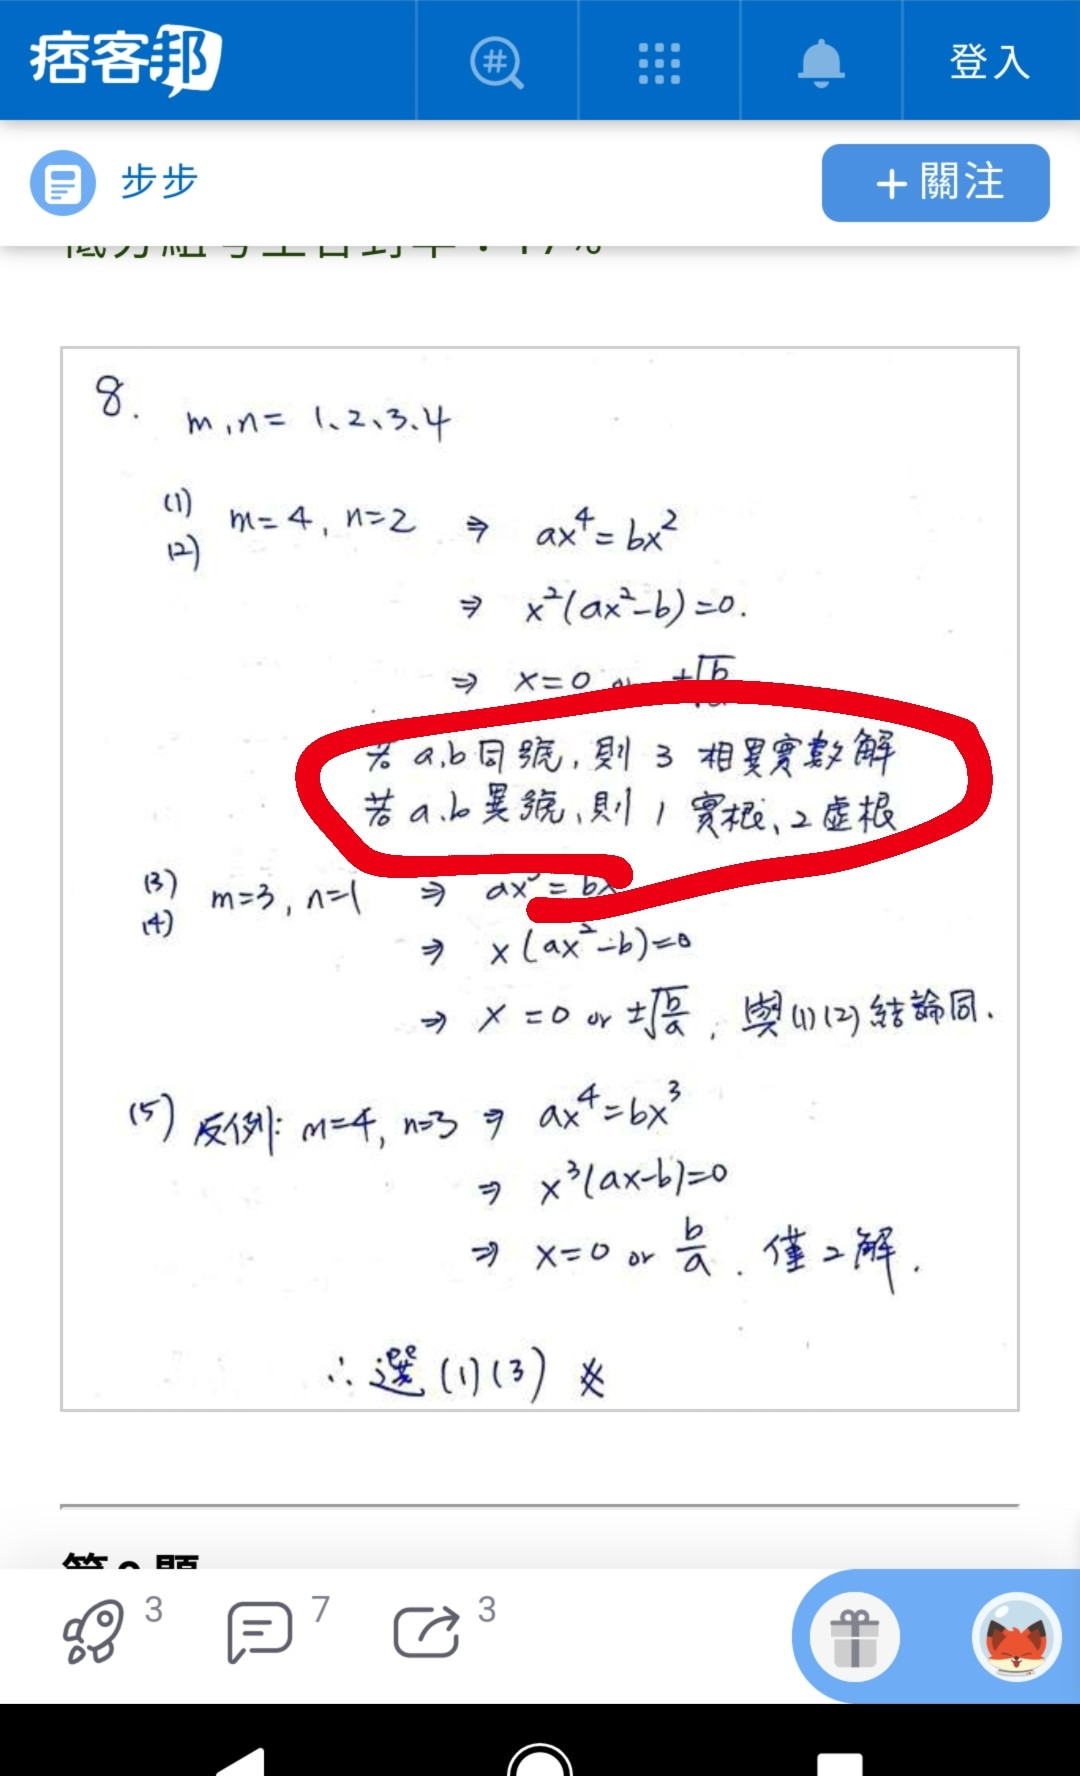 痞客邦
登入
步步
+關注
8.
m,n= 1、2、3、4
(1)
(2)
m=4, n=2 ⇒ ax⁴=bx²
⇒ x²(ax²-b)=0.
⇒ x=0
若 a,b同號,則 3 相異實數解
若 a,b異號,則 1 實根、2虛根
(3)
(4)
m=3, n=1 ⇒ ax³=bx
⇒ x(ax²-b)=0
⇒ x=0 or ±√(b/a), 與(1)(2)結論同.
(5) 反例: m=4, n=3 ⇒ ax⁴=bx³
⇒ x³(ax-b)=0
⇒ x=0 or b/a. 僅2解.
∴選(1)(3)
3
7
3